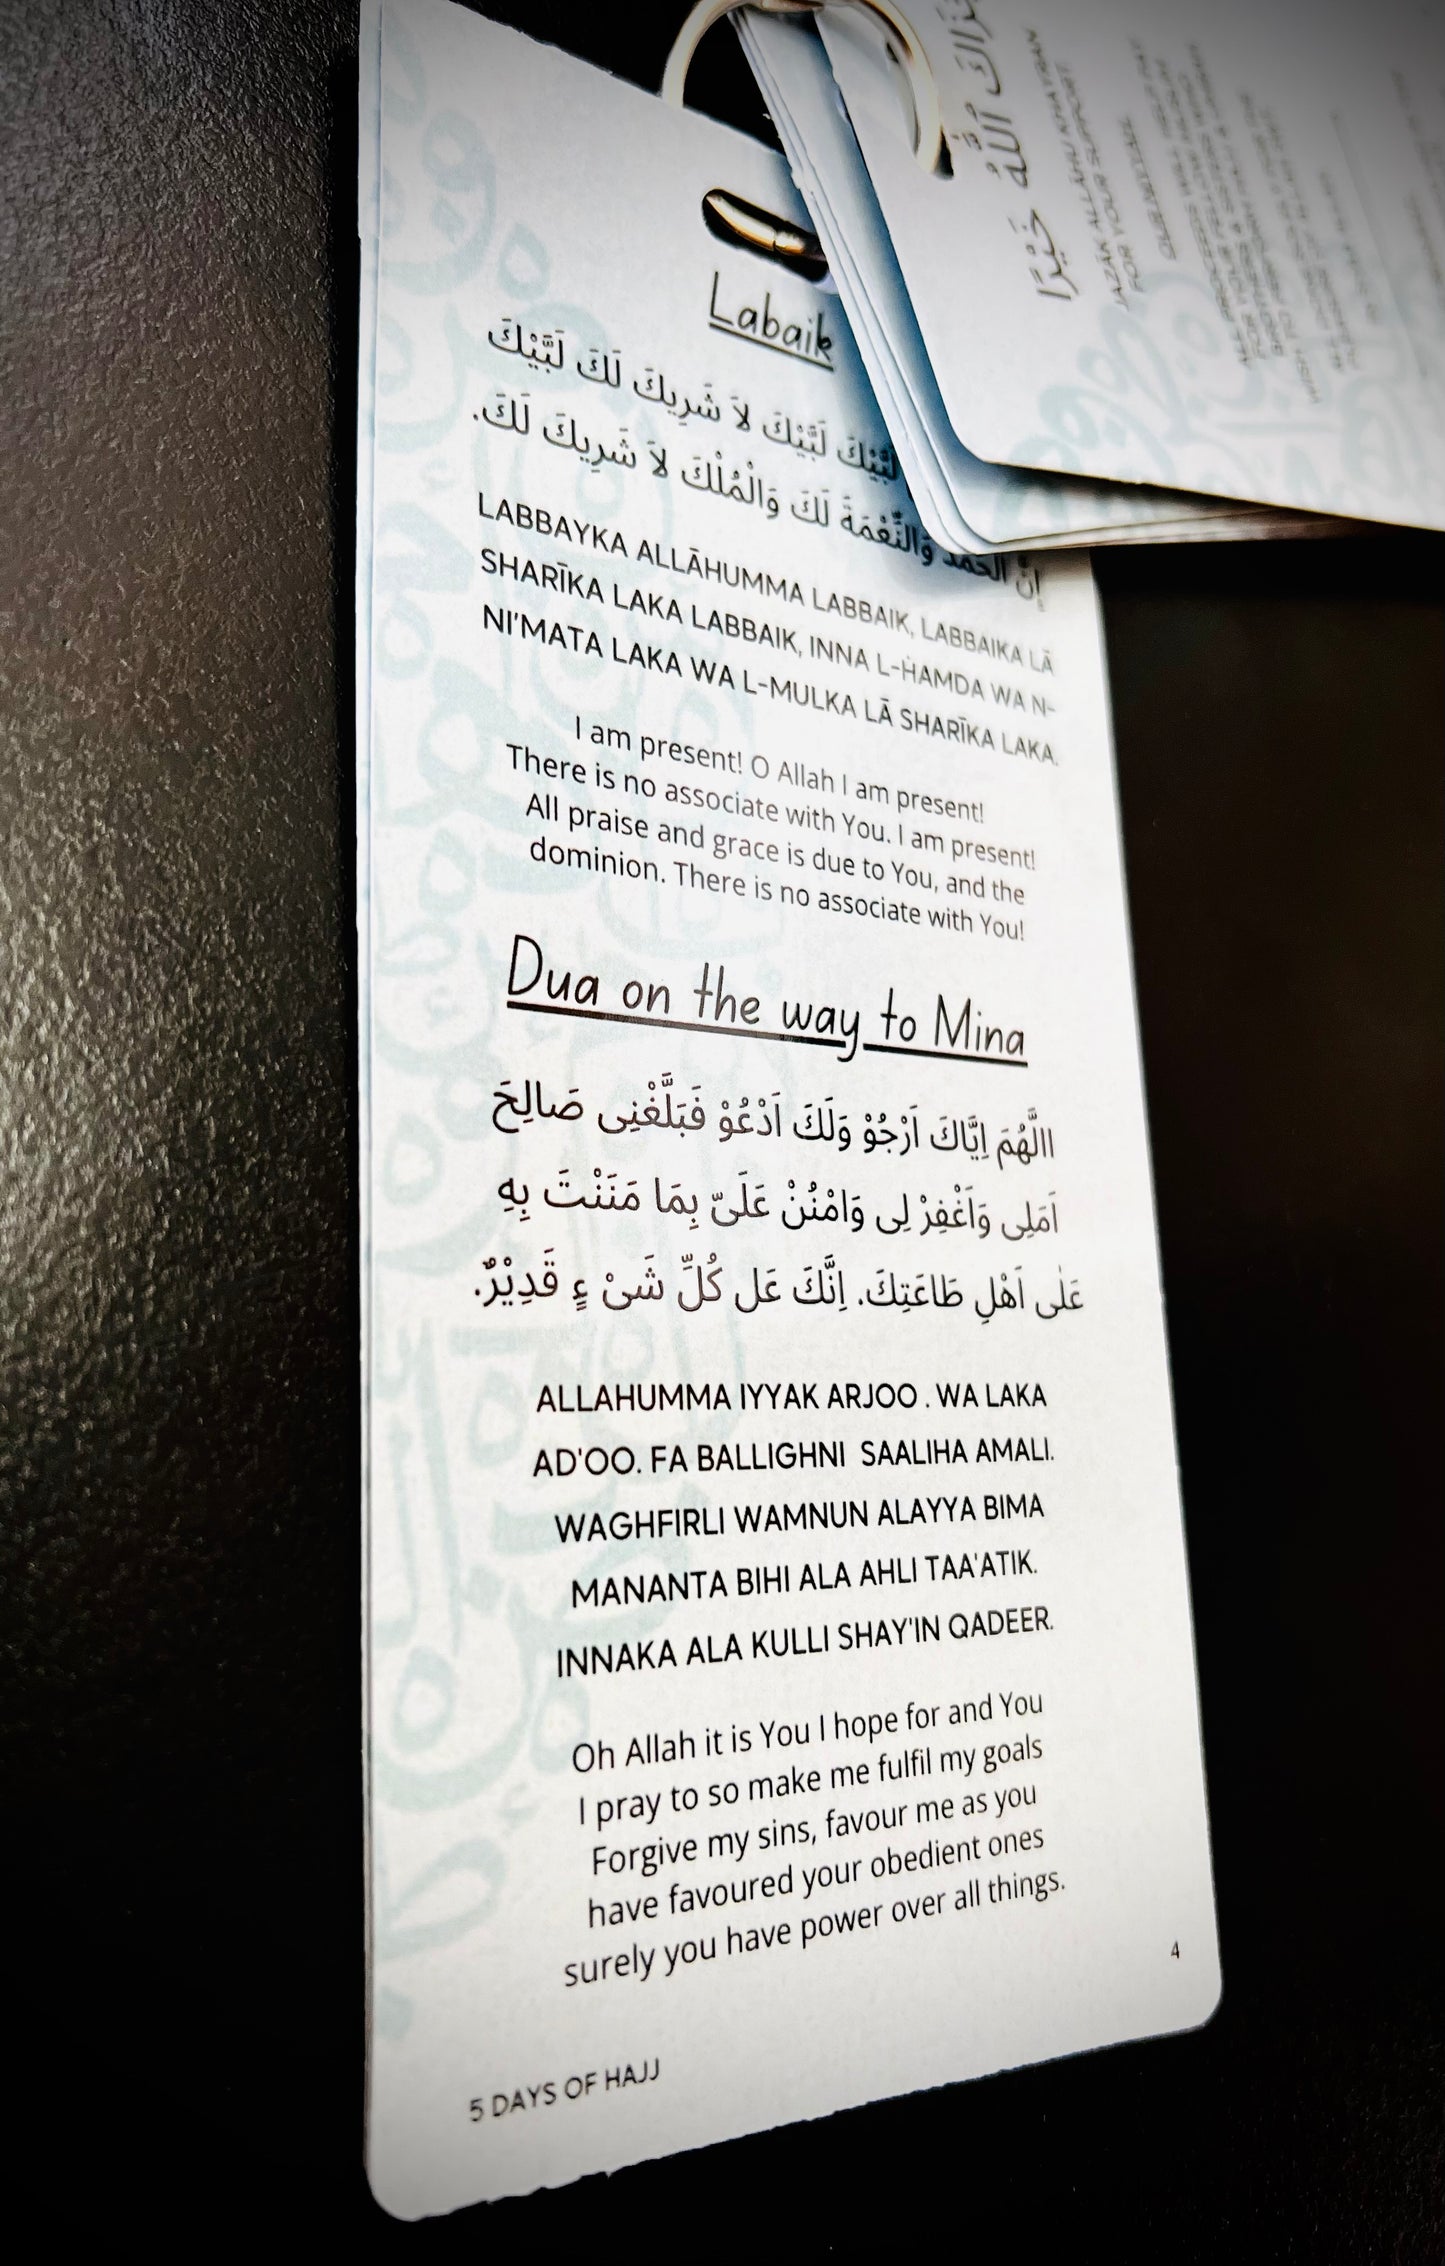 Labaik
لَبَّيْكَ لَبَّيْكَ لاَ شَرِيكَ لَكَ لَبَّيْكَ
إِنَّ الْحَمْدَ وَالنِّعْمَةَ لَكَ وَالْمُلْكَ لاَ شَرِيكَ لَكَ.
LABBAYKA ALLĀHUMMA LABBAIK, LABBAIKA LĀ
SHARĪKA LAKA LABBAIK, INNA L-ḢAMDA WA N-
NI'MATA LAKA WA L-MULKA LĀ SHARĪKA LAKA.
I am present! O Allah I am present!
There is no associate with You. I am present!
All praise and grace is due to You, and the
dominion. There is no associate with You!
Dua on the way to Mina
االَّهُمَ اِيَّاكَ اَرْجُوْ وَلَكَ اَدْعُوْ فَبَلَّغْنِى صَالِحَ
اَمَلِى وَاَغْفِرْ لِى وَامْنُنْ عَلَىّ بِمَا مَنَنْتَ بِهِ
عَلٰى اَهْلِ طَاعَتِكَ. اِنَّكَ عَل كُلِّ شَىْ ءٍ قَدِيْرٌ.
ALLAHUMMA IYYAK ARJOO . WA LAKA
AD'OO. FA BALLIGHNI SAALIHA AMALI.
WAGHFIRLI WAMNUN ALAYYA BIMA
MANANTA BIHI ALA AHLI TAA'ATIK.
INNAKA ALA KULLI SHAY'IN QADEER.
Oh Allah it is You I hope for and You
I pray to so make me fulfil my goals
Forgive my sins, favour me as you
have favoured your obedient ones
surely you have power over all things.
4
5 DAYS OF HAJJ
اللّٰهُ خَيْرًا
JAZĀK ALLĀHU KHAYRAN
FOR YOUR SUPPORT!